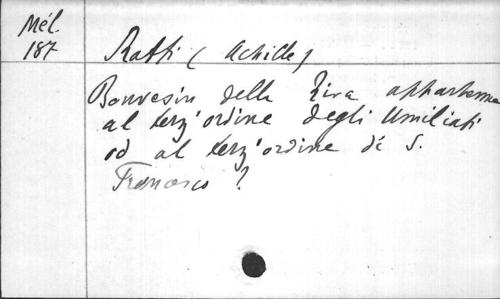 Mél.
187
Ratti (Achille)
Bonvesin della Riva appartenne
al terz'ordine degli Umiliati
od al terz'ordine di S.
Francesco ?